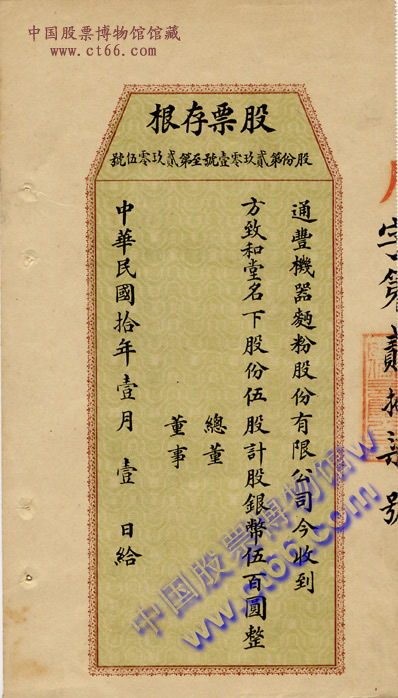 中国股票博物馆馆藏
www.ct66.com
股票存根
股份第貳玖零壹號至第貳玖零伍號
通豐機器麵粉股份有限公司今收到
方致和堂名下股份伍股計股銀幣伍百圓整
總董
董事
中華民國拾年壹月壹日給
字第貳拾柒號
中国股票博物馆
www.ct66.com